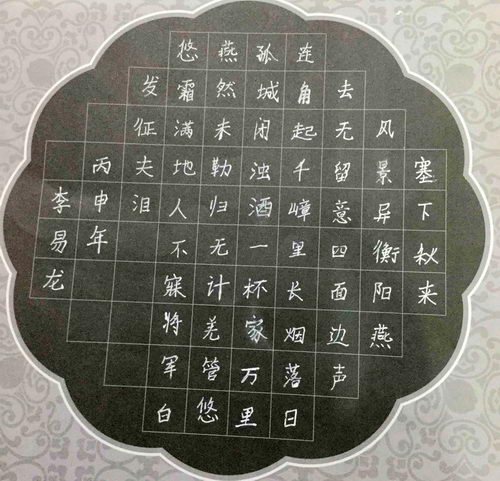 塞下秋来
风景异衡阳燕
去无留意四面边声
连角起千嶂里长烟落日
孤城闭浊酒一杯家万里
燕然未勒归无计羌管悠
悠霜满地人不寐将军白
发征夫泪
丙申年
李易龙